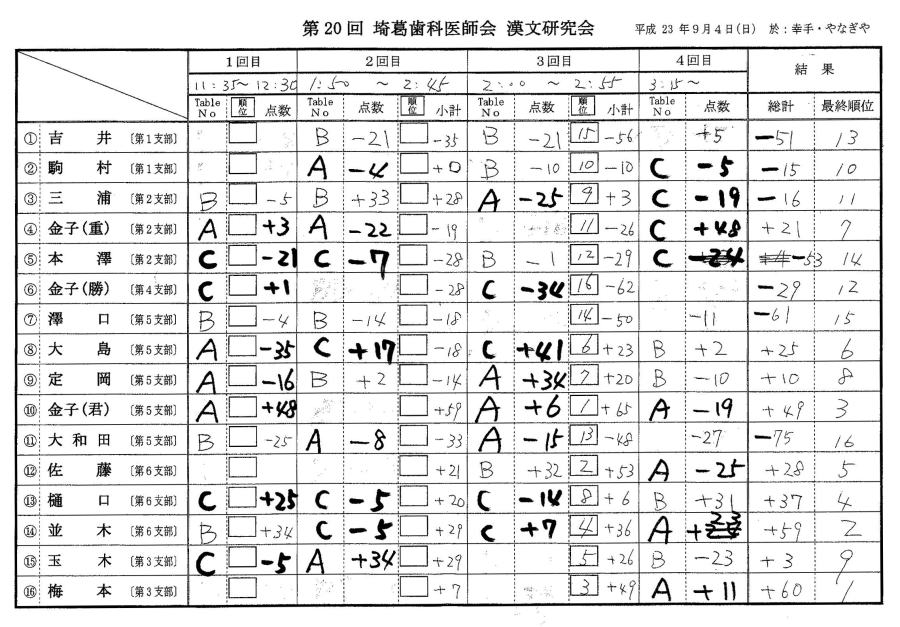 第20回 埼葛歯科医師会 漢文研究会 平成23年9月4日(日) 於:幸手・やなぎや
1回目 2回目 3回目 4回目 結果
11:35~12:30 1:50 ~ 2:45 2:00 ~ 2:55 3:15~
Table No 順位 点数 Table No 点数 順位 小計 Table No 点数 順位 小計 Table No 点数 総計 最終順位
① 吉井 [第1支部] B -21 -35 B -21 15 -56 +5 -51 13
② 駒村 [第1支部] A -4 +0 B -10 10 -10 C -5 -15 10
③ 三浦 [第2支部] B -5 B +33 +28 A -25 9 +3 C -19 -16 11
④ 金子(重) [第2支部] A +3 A -22 -19 11 -26 C +48 +21 7
⑤ 本澤 [第2支部] C -21 C -7 -28 B -1 12 -29 C -24 -53 14
⑥ 金子(勝) [第4支部] C +1 -28 C -34 16 -62 -29 12
⑦ 澤口 [第5支部] B -4 B -14 -18 14 -50 -11 -61 15
⑧ 大島 [第5支部] A -35 C +17 -18 C +41 6 +23 B +2 +25 6
⑨ 定岡 [第5支部] A -16 B +2 -14 A +34 7 +20 B -10 +10 8
⑩ 金子(君) [第5支部] A +48 +59 A +6 1 +65 A -19 +49 3
⑪ 大和田 [第5支部] B -25 A -8 -33 A -15 13 -48 -27 -75 16
⑫ 佐藤 [第6支部] +21 B +32 2 +53 A -25 +28 5
⑬ 樋口 [第6支部] C +25 C -5 +20 C -14 8 +6 B +31 +37 4
⑭ 並木 [第6支部] B +34 C -5 +29 C +7 4 +36 A +23 +59 2
⑮ 玉木 [第3支部] C -5 A +34 +29 5 +26 B -23 +3 9
⑯ 梅本 [第3支部] +7 3 +49 A +11 +60 1